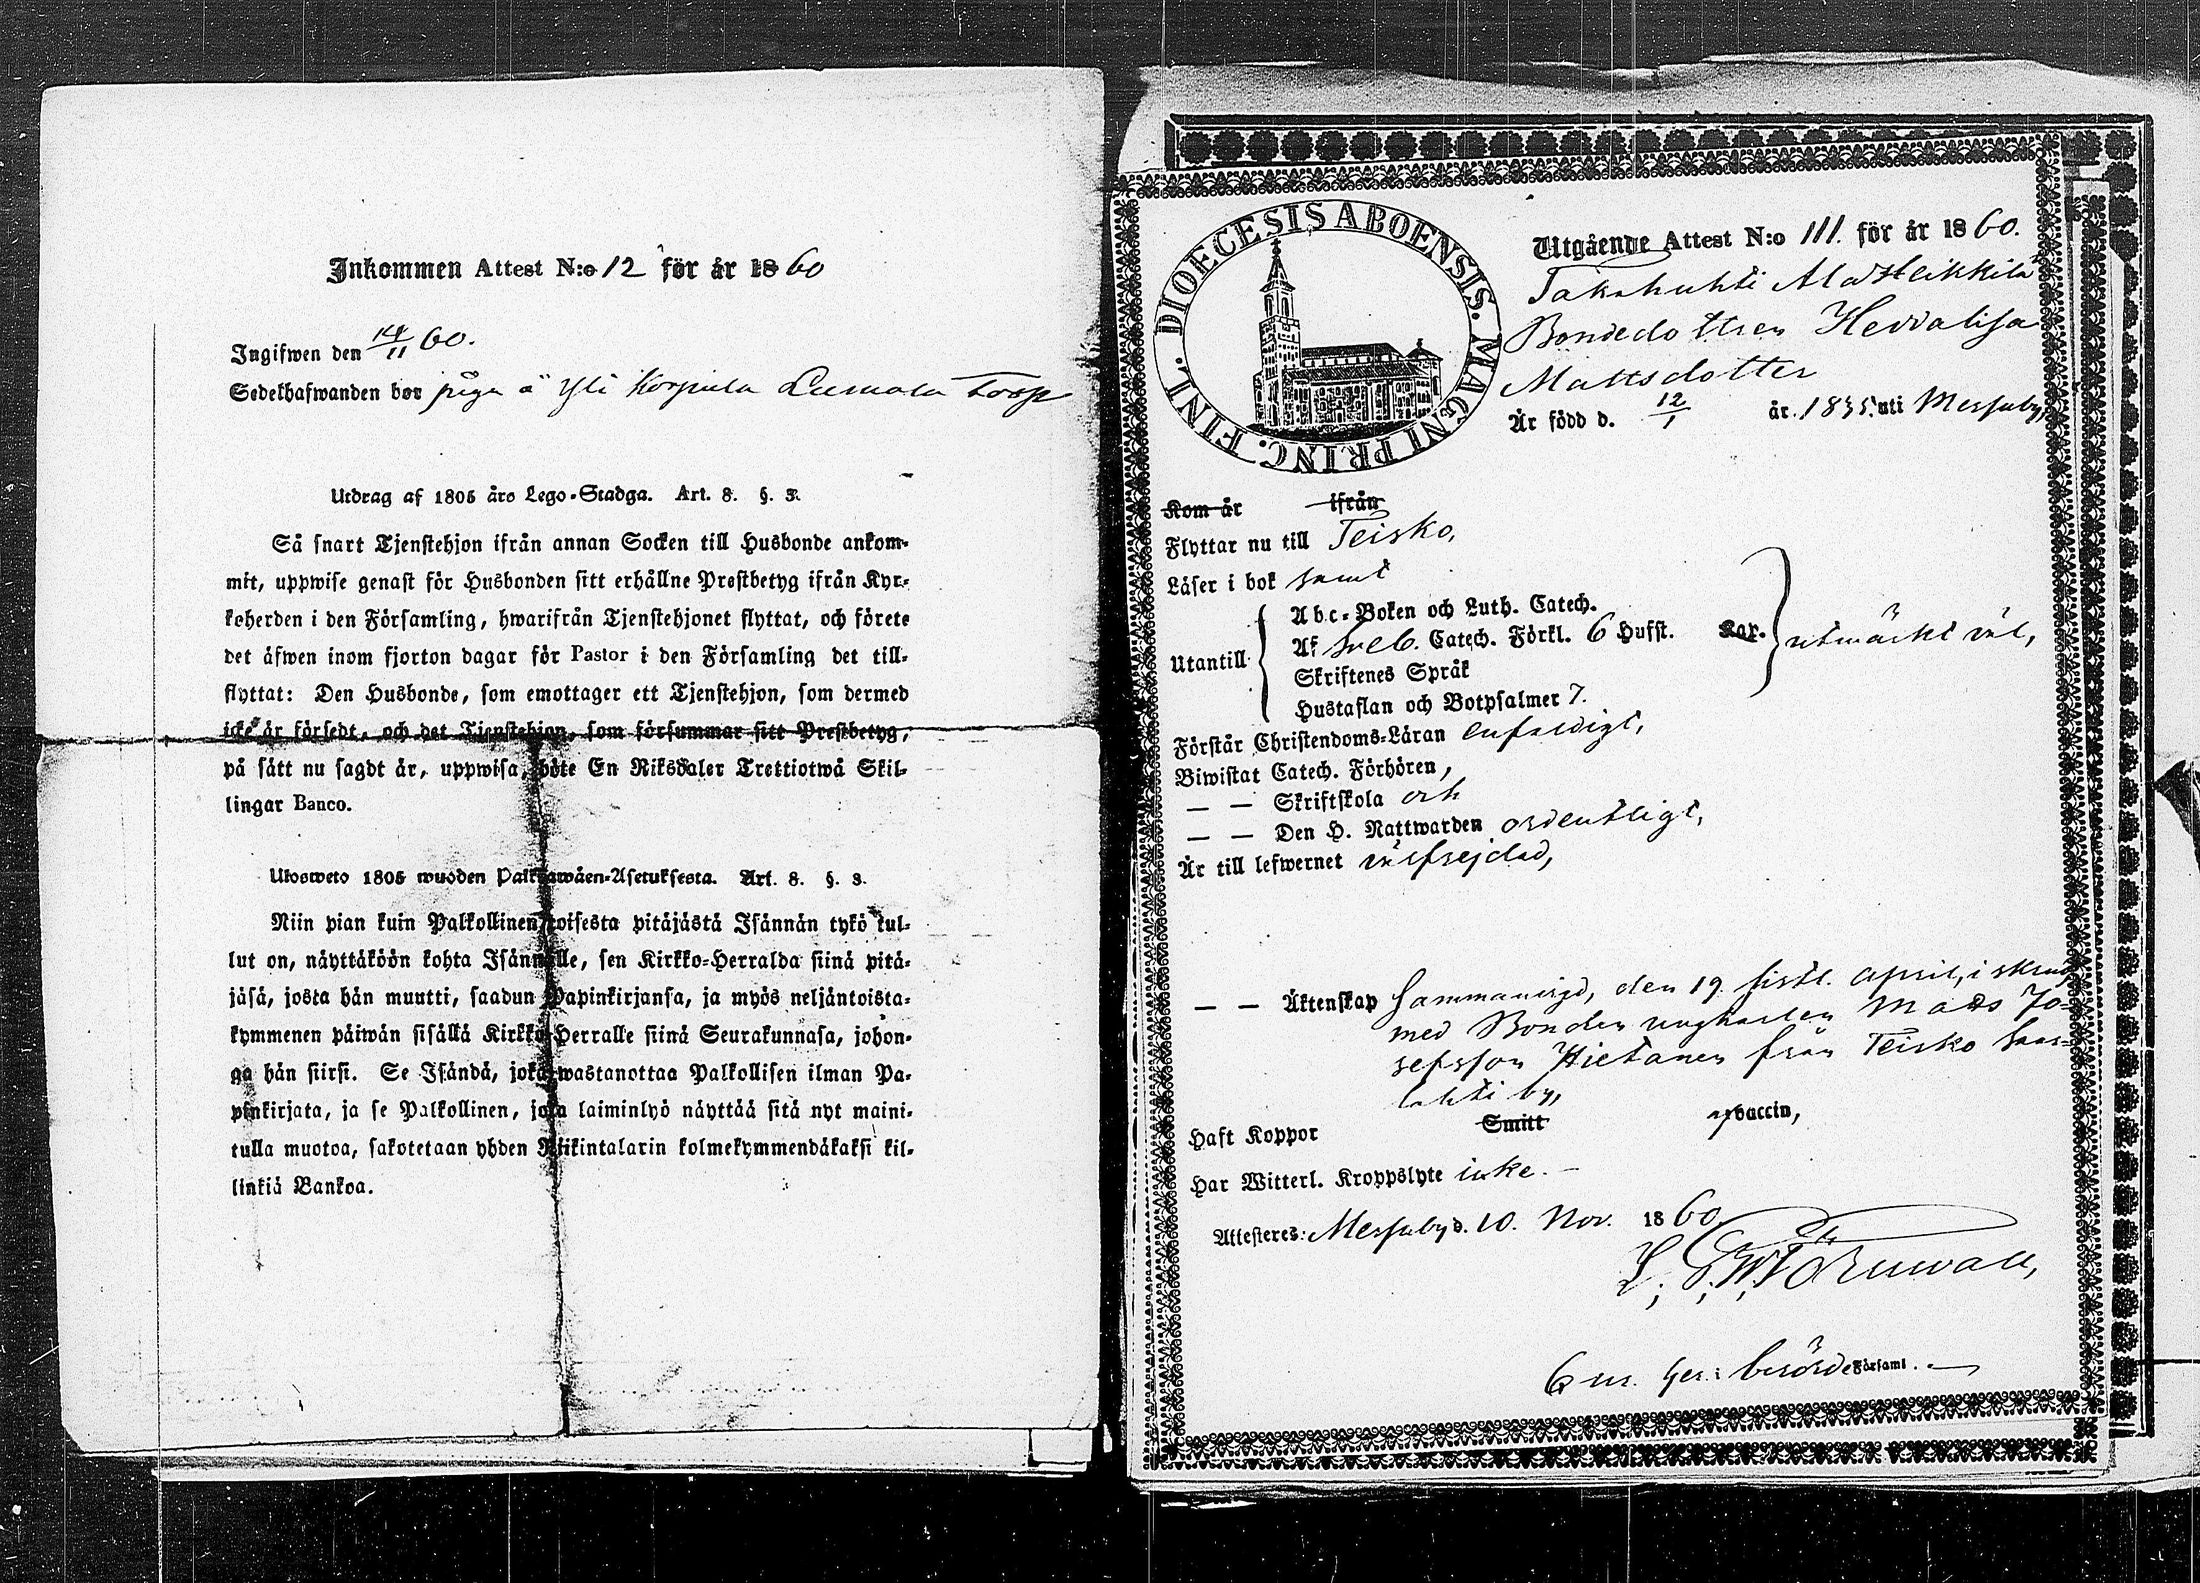 Inkommen Attest N:o 12 för år 1860
Ingifwen den 14/11 60.
Sedelhafwanden bor piga å Yli Korpula Lumala Torp
Utdrag af 1805 års Lego-Stadga. Art. 8. §. 3.
Så snart Tjenstehjon ifrån annan Socken till Husbonde ankom-
mit, uppwise genast för Husbonden sitt erhållne Prestbetyg ifrån Kyr-
koherden i den Församling, hwarifrån Tjenstehjonet flyttat, och förete
det äfwen inom fjorton dagar för Pastor i den Församling det till-
flyttat: Den Husbonde, som emottager ett Tjenstehjon, som dermed
icke är försedt, och det Tjenstehjon, som försummar sitt Prestbetyg,
på sätt nu sagdt är, uppwisa, böte En Riksdaler Trettiotwå Skil-
lingar Banco.
Ulosweto 1805 wuoden Palkkawäen-Asetuksesta. Art. 8. §. 3.
Niin pian kuin Palkollinen toisesta pitäjästä Isännän tykö tul-
lut on, näyttäköön kohta Isännälle, sen Kirkko-Herralda siinä pitä-
jäsä, josta hän muutti, saadun Papinkirjansa, ja myös neljäntoista-
kymmenen päiwän sisällä Kirkko-Herralle siinä Seurakunnasa, johon-
ga hän siirsi. Se Isändä, joka wastanottaa Palkollisen ilman Pa-
pinkirjata, ja se Palkollinen, joka laiminlyö näyttää sitä nyt maini-
tulla muotoa, sakotetaan yhden Riikintalarin kolmekymmendäkaksi kil-
linkiä Bankoa.
DIOECESIS ABOENSIS. MAGNI PRINC. FINL.
Utgående Attest N:o 111. för år 1860.
Takahuhti Alasteikkilä
Bondedottren Heddalisa
Mattsdotter
Är född d. 12/1 år 1835. uti Messuby,
Kom år ifrån
Flyttar nu till Teisko,
Läser i bok samt
Utantill
Abc-Boken och Luth. Catech.
Af Sveb. Catech. Förkl. 6 Hufst. Lax. utmärkt väl,
Skriftenes Språk
Hustaflan och Botpsalmer 7.
Förstår Christendoms-Läran enfaldigt,
Biwistat Catech. Förhören,
— — Skriftskola och
— — Den H. Nattwarden ordentligt,
Är till lefwernet välfrejdad,
— — Äktenskap sammanvigd, den 19 sistl. April, i
med Bonden ungkarlen Mats Jo-
sefsson Hietanen från Teisko Saas-
lahti by,
Haft Koppor Smitt af vaccin,
Har Witterl. Kroppslyte icke. —
Attesteres: Messuby d. 10. Nov. 1860
L, G. W. Törnwall,
Församl. —